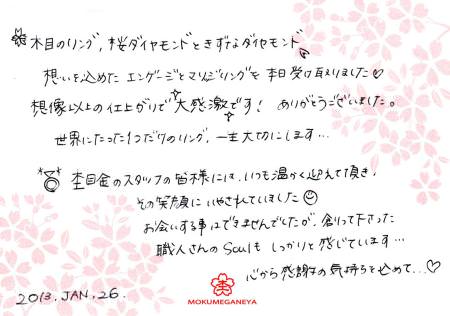 木目のリング、桜ダイヤモンドときずなダイヤモンド
想いを込めた エンゲージとマリッジリングを 本日 受け取りました♡
想像以上の仕上がりで 大感激です! ありがとうございました。
世界にたった1つだけのリング、一生大切にします…
杢目金のスタッフの皆様には、いつも温かく迎えて頂き、
その笑顔に いやされていました☺
お会いする事はできませんでしたが、創って下さった
職人さんのSoulも しっかりと感じています…
心から感謝の気持ちを込めて…♡
2013. JAN. 26.
MOKUMEGANEYA